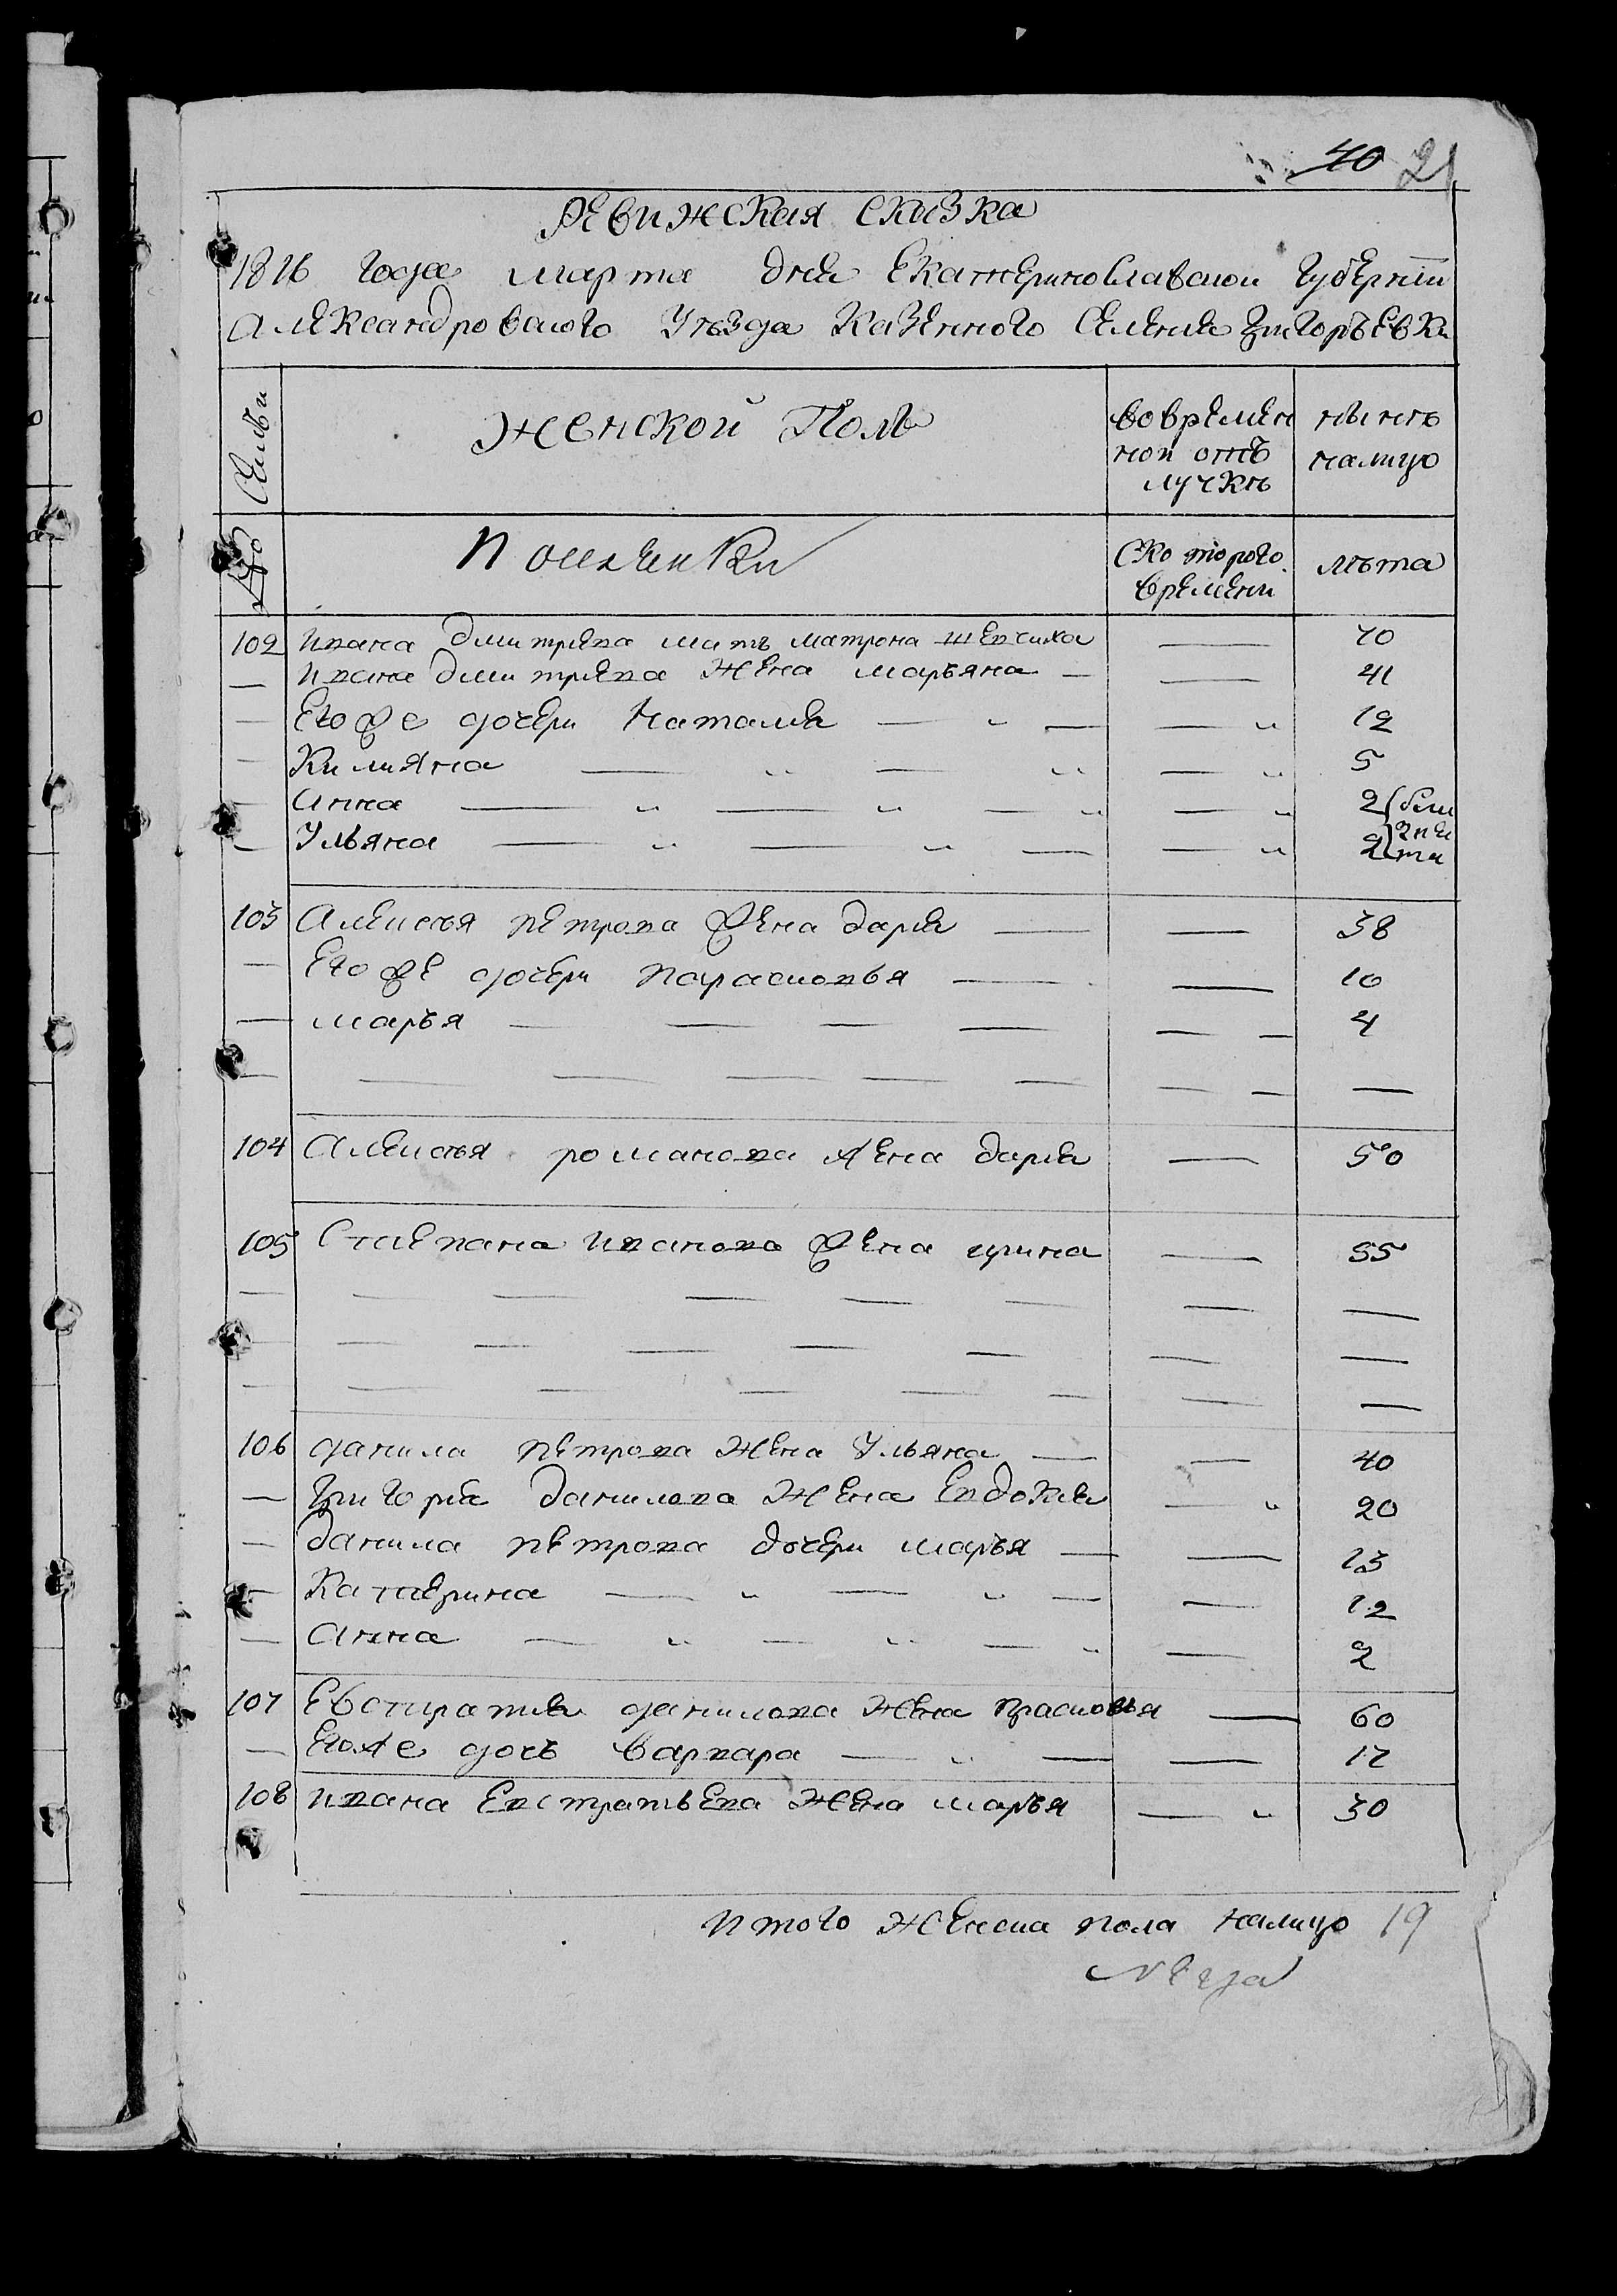 40 21
Ревижская сказка
1816 года марта дня Екатеринославской Губернїи
Александровского Уѣзда Казенного Селения Григорьевки
№ Семьи
Женской Полъ
во времен
ной отъ
лучкѣ
нынѣ
налицо
Поселянки
С которого
времени
лѣта
102 Ивана Дмитрева мать Матрона — 70
— Ивана Дмитрева жена Марьяна — — 41
— Его же дочери Наталия — " — — " 12
— Килияна — " — " — " 5
— Анна — " — " — " — " 2
— Ульяна — " — " — — " 2
103 Алексея Петрова жена Дария — — 38
— Его же дочери Парасковья — — 10
— Марья — — — — — — 4
— — — — — — — — —
104 Алексея Романова жена Дария — 50
105 Степана Иванова жена Ирина — 55
— — — — — — — —
— — — — — — — —
— — — — — — — —
106 Данила Петрова жена Ульяна — — 40
— Григория Данилова жена Евдокия — " 20
— Данила Петрова дочери Марья — — 13
— Катерина — " — " — — 12
— Анна — " — " — " — 2
107 Евстратия Данилова жена Прасковья — 60
— Его же дочь Варвара — " — — 17
108 Ивана Евстратьева жена Марья — " 30
Итого женска пола налицо 19